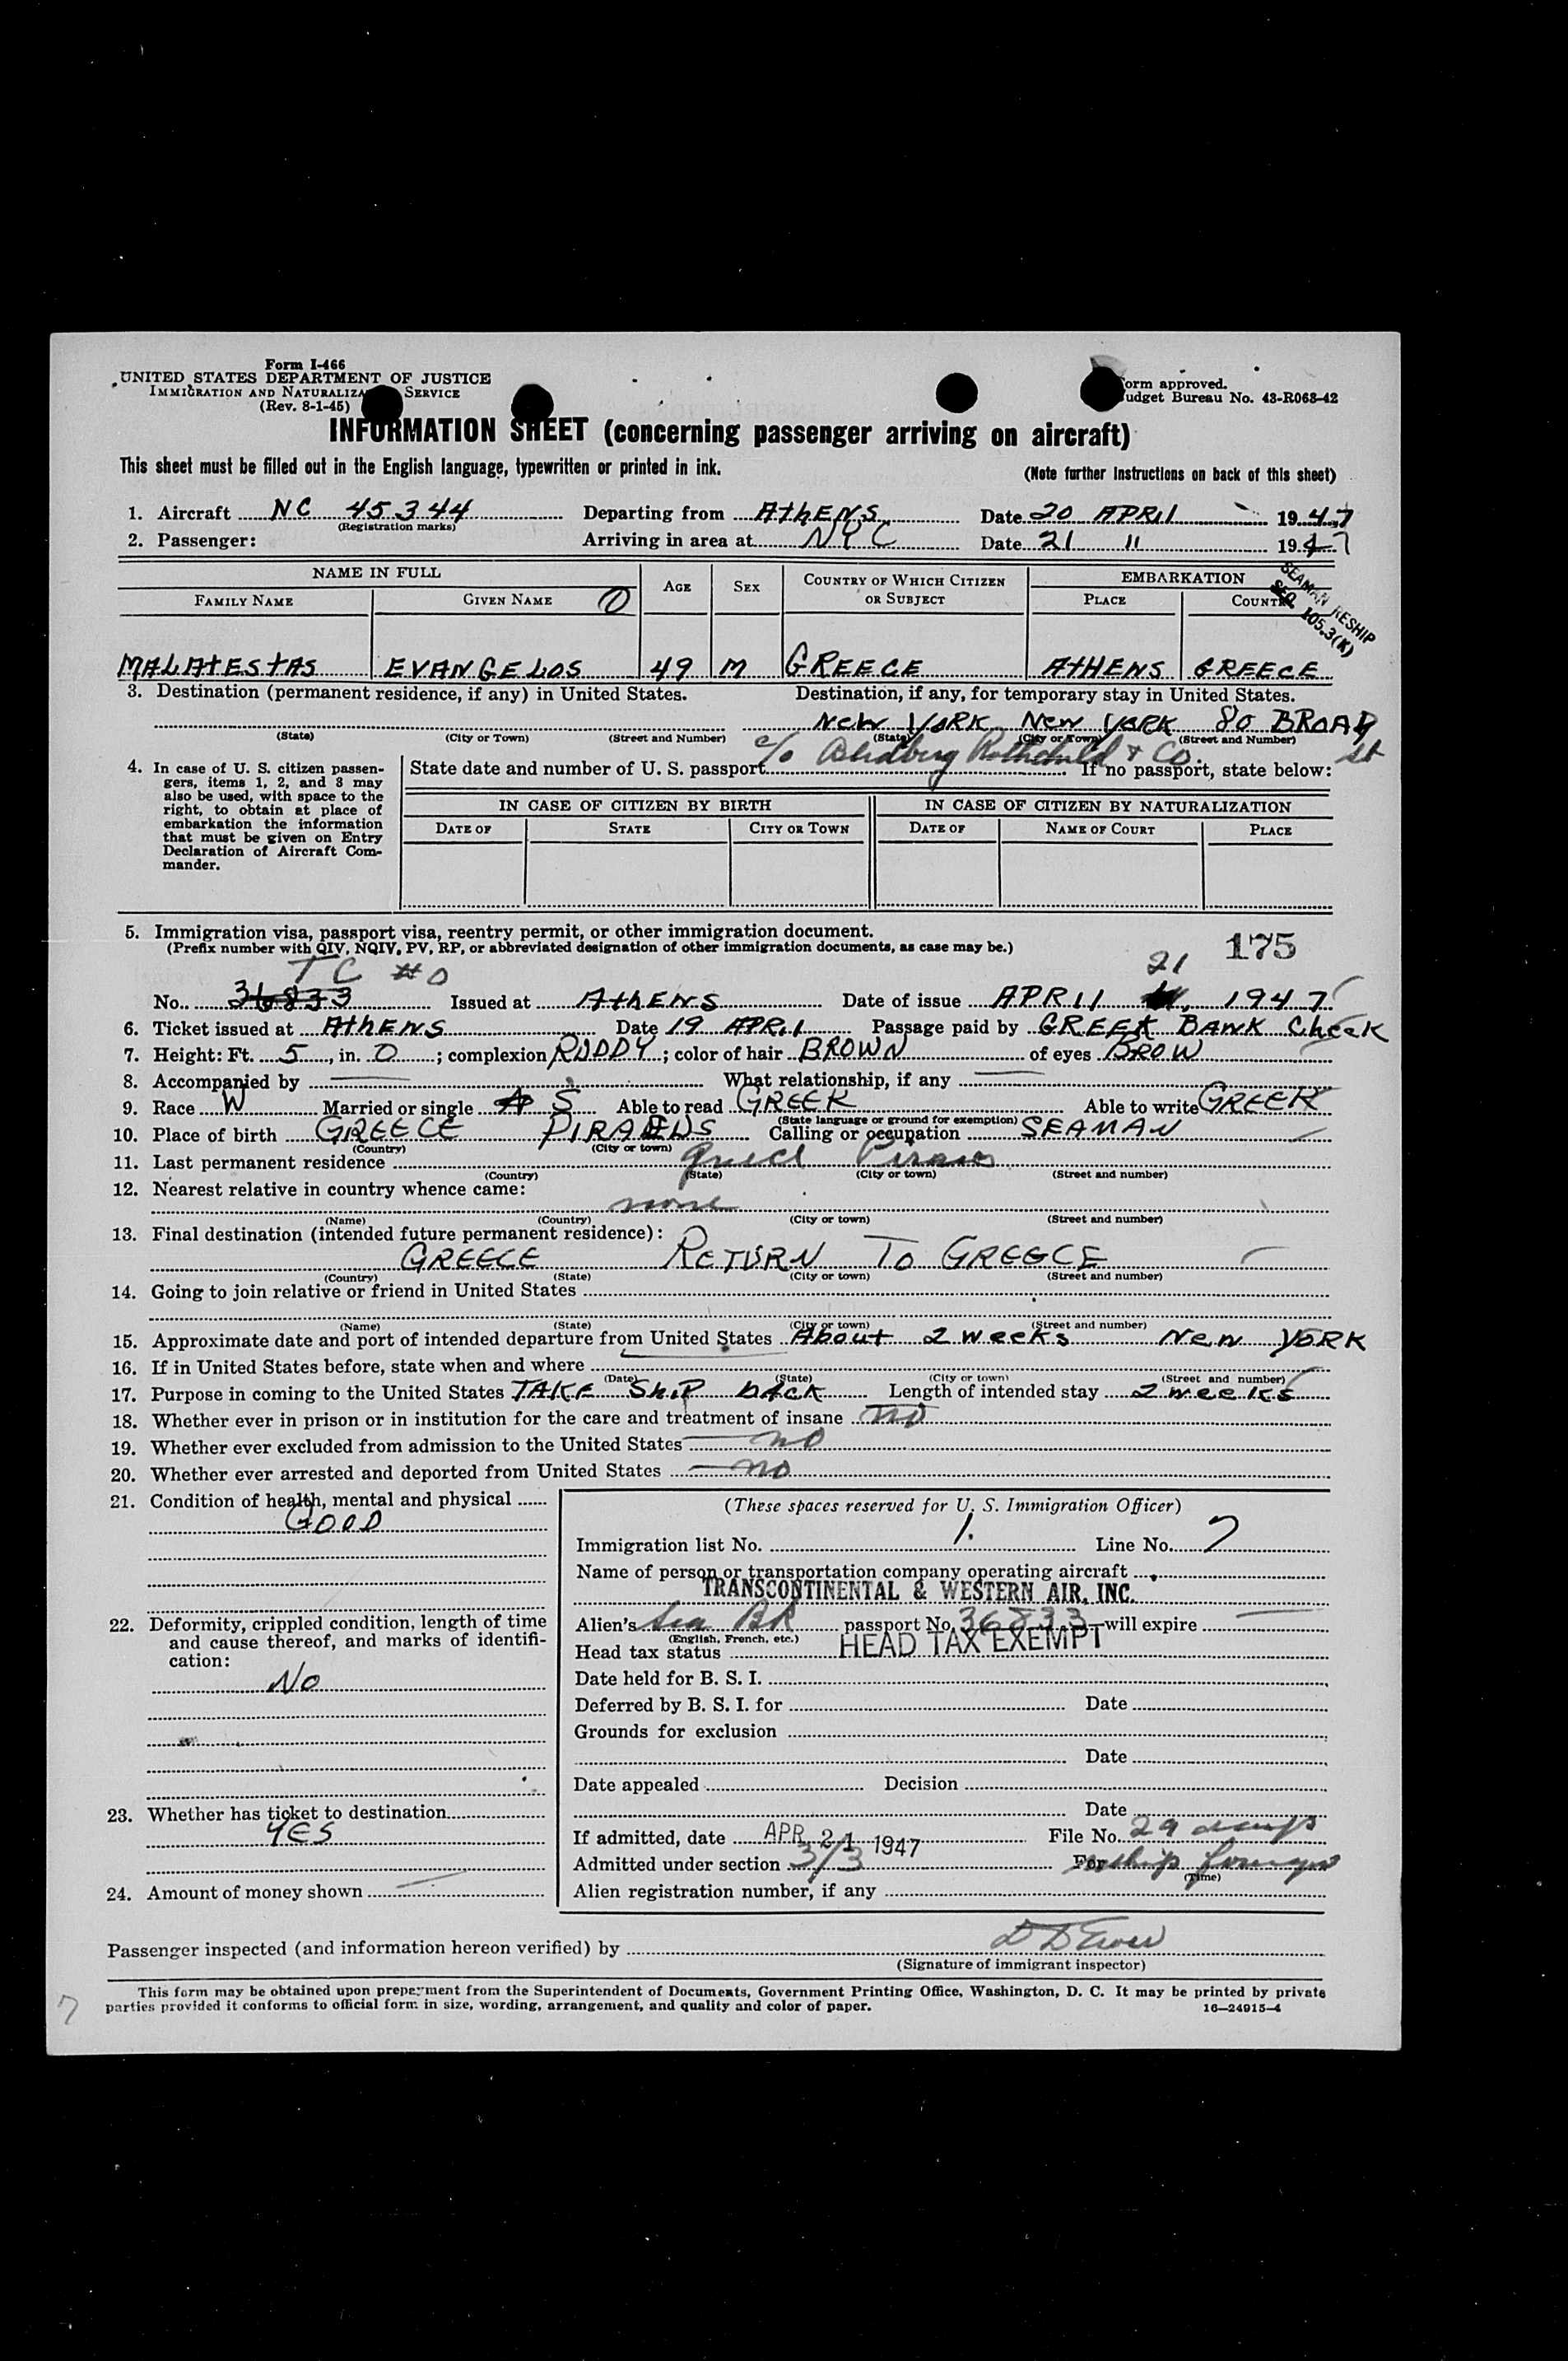 Form I-466
UNITED STATES DEPARTMENT OF JUSTICE
IMMIGRATION AND NATURALIZA SERVICE
(Rev. 8-1-45)
orm approved.
udget Bureau No. 43-R068-42
INFORMATION SHEET (concerning passenger arriving on aircraft)
This sheet must be filled out in the English language, typewritten or printed in ink. (Note further instructions on back of this sheet)
1. Aircraft NC 45344 Departing from AthENS Date 20 APRIL 1947
(Registration marks)
2. Passenger: Arriving in area at NYC Date 21 " 1947
NAME IN FULL AGE SEX COUNTRY OF WHICH CITIZEN OR SUBJECT EMBARKATION
FAMILY NAME GIVEN NAME O PLACE COUNTR
SEAMAN RESHIP
SEC 105.3(K)
MALAtEStAS EVANGELOS 49 M GREECE AtHENS GREECE
3. Destination (permanent residence, if any) in United States. Destination, if any, for temporary stay in United States.
New YORK New YORK 80 BROAD st
(State) (City or Town) (Street and Number) (State) (City or Town) (Street and Number)
c/o Blidberg Rothchild & Co.
4. In case of U. S. citizen passen-
gers, items 1, 2, and 3 may
also be used, with space to the
right, to obtain at place of
embarkation the information
that must be given on Entry
Declaration of Aircraft Com-
mander.
State date and number of U. S. passport If no passport, state below:
IN CASE OF CITIZEN BY BIRTH IN CASE OF CITIZEN BY NATURALIZATION
DATE OF STATE CITY OR TOWN DATE OF NAME OF COURT PLACE
5. Immigration visa, passport visa, reentry permit, or other immigration document.
(Prefix number with QIV, NQIV, PV, RP, or abbreviated designation of other immigration documents, as case may be.)
175
TC #0 21
No. 36833 Issued at AthENS Date of issue APRIl 1947
6. Ticket issued at AthENS Date 19 APRIl Passage paid by GREEK BANK Check
7. Height: Ft. 5, in. 0; complexion RUDDY; color of hair BROWN of eyes BROW
8. Accompanied by What relationship, if any
9. Race W Married or single S Able to read GREEK Able to write GREEK
(State language or ground for exemption)
10. Place of birth GREECE PIRAEUS Calling or occupation SEAMAN
(Country) (City or town)
11. Last permanent residence Greece Piraeus
(Country) (State) (City or town) (Street and number)
12. Nearest relative in country whence came:
none
(Name) (Country) (City or town) (Street and number)
13. Final destination (intended future permanent residence):
GREECE RETURN TO GREECE
(Country) (State) (City or town) (Street and number)
14. Going to join relative or friend in United States
(Name) (State) (City or town) (Street and number)
15. Approximate date and port of intended departure from United States About 2 weeks New YORK
16. If in United States before, state when and where
(Date) (State) (City or town) (Street and number)
17. Purpose in coming to the United States TAKE ShiP bAcK Length of intended stay 2 weeks
18. Whether ever in prison or in institution for the care and treatment of insane no
19. Whether ever excluded from admission to the United States no
20. Whether ever arrested and deported from United States no
21. Condition of health, mental and physical
GOOD
22. Deformity, crippled condition, length of time
and cause thereof, and marks of identifi-
cation:
No
23. Whether has ticket to destination
YES
24. Amount of money shown
(These spaces reserved for U. S. Immigration Officer)
Immigration list No. 1. Line No. 7
Name of person or transportation company operating aircraft
TRANSCONTINENTAL & WESTERN AIR, INC.
Alien's Sea BK passport No. 36833 will expire
(English, French, etc.)
Head tax status HEAD TAX EXEMPT
Date held for B. S. I.
Deferred by B. S. I. for Date
Grounds for exclusion
Date
Date appealed Decision
Date
If admitted, date APR 21 1947 File No. 29 days
Admitted under section 3/3 For reship foreign
(Time)
Alien registration number, if any
Passenger inspected (and information hereon verified) by
(Signature of immigrant inspector)
This form may be obtained upon prepayment from the Superintendent of Documents, Government Printing Office, Washington, D. C. It may be printed by private
parties provided it conforms to official form in size, wording, arrangement, and quality and color of paper. 16—24915-4
7